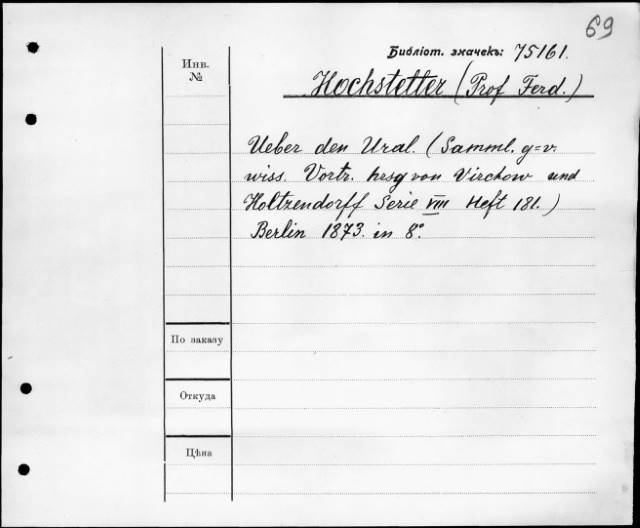 69
Библіот. значекъ: 75161.
Инв.
№
Hochstetter (Prof Ferd.)
Ueber den Ural. (Samml. g=v.
wiss. Vortr. hrsg von Virchow und
Holtzendorff Serie VIII Heft 181.)
Berlin 1873. in 8º.
По заказу
Откуда
Цѣна